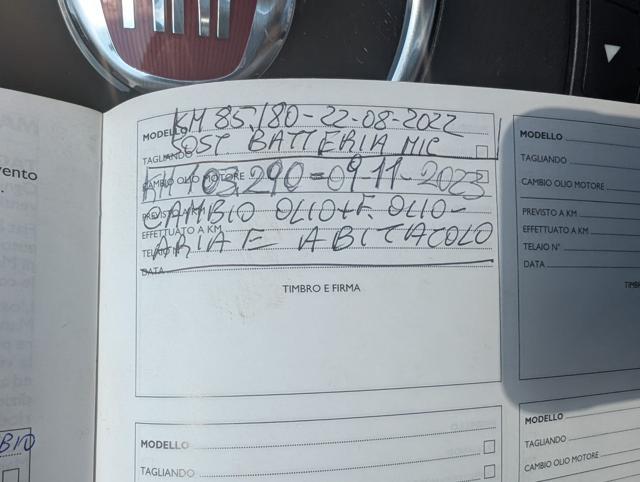 FIAT
vento
BIO
KM 85.180-22-08-2022
MODELLO
SOST. BATTERIA MIC
TAGLIANDO
KM 103.290=09 11-2023
CAMBIO OLIO MOTORE
CAMBIO OLIO+F. OLIO-
PREVISTO A KM
EFFETTUATO A KM
ARIA E ABITACOLO
TELAIO N°
DATA
TIMBRO E FIRMA
MODELLO
TAGLIANDO
MODELLO
TAGLIANDO
CAMBIO OLIO MOTORE
PREVISTO A KM
EFFETTUATO A KM
TELAIO N°
DATA
TIMB
MODELLO
TAGLIANDO
CAMBIO OLIO MOTORE